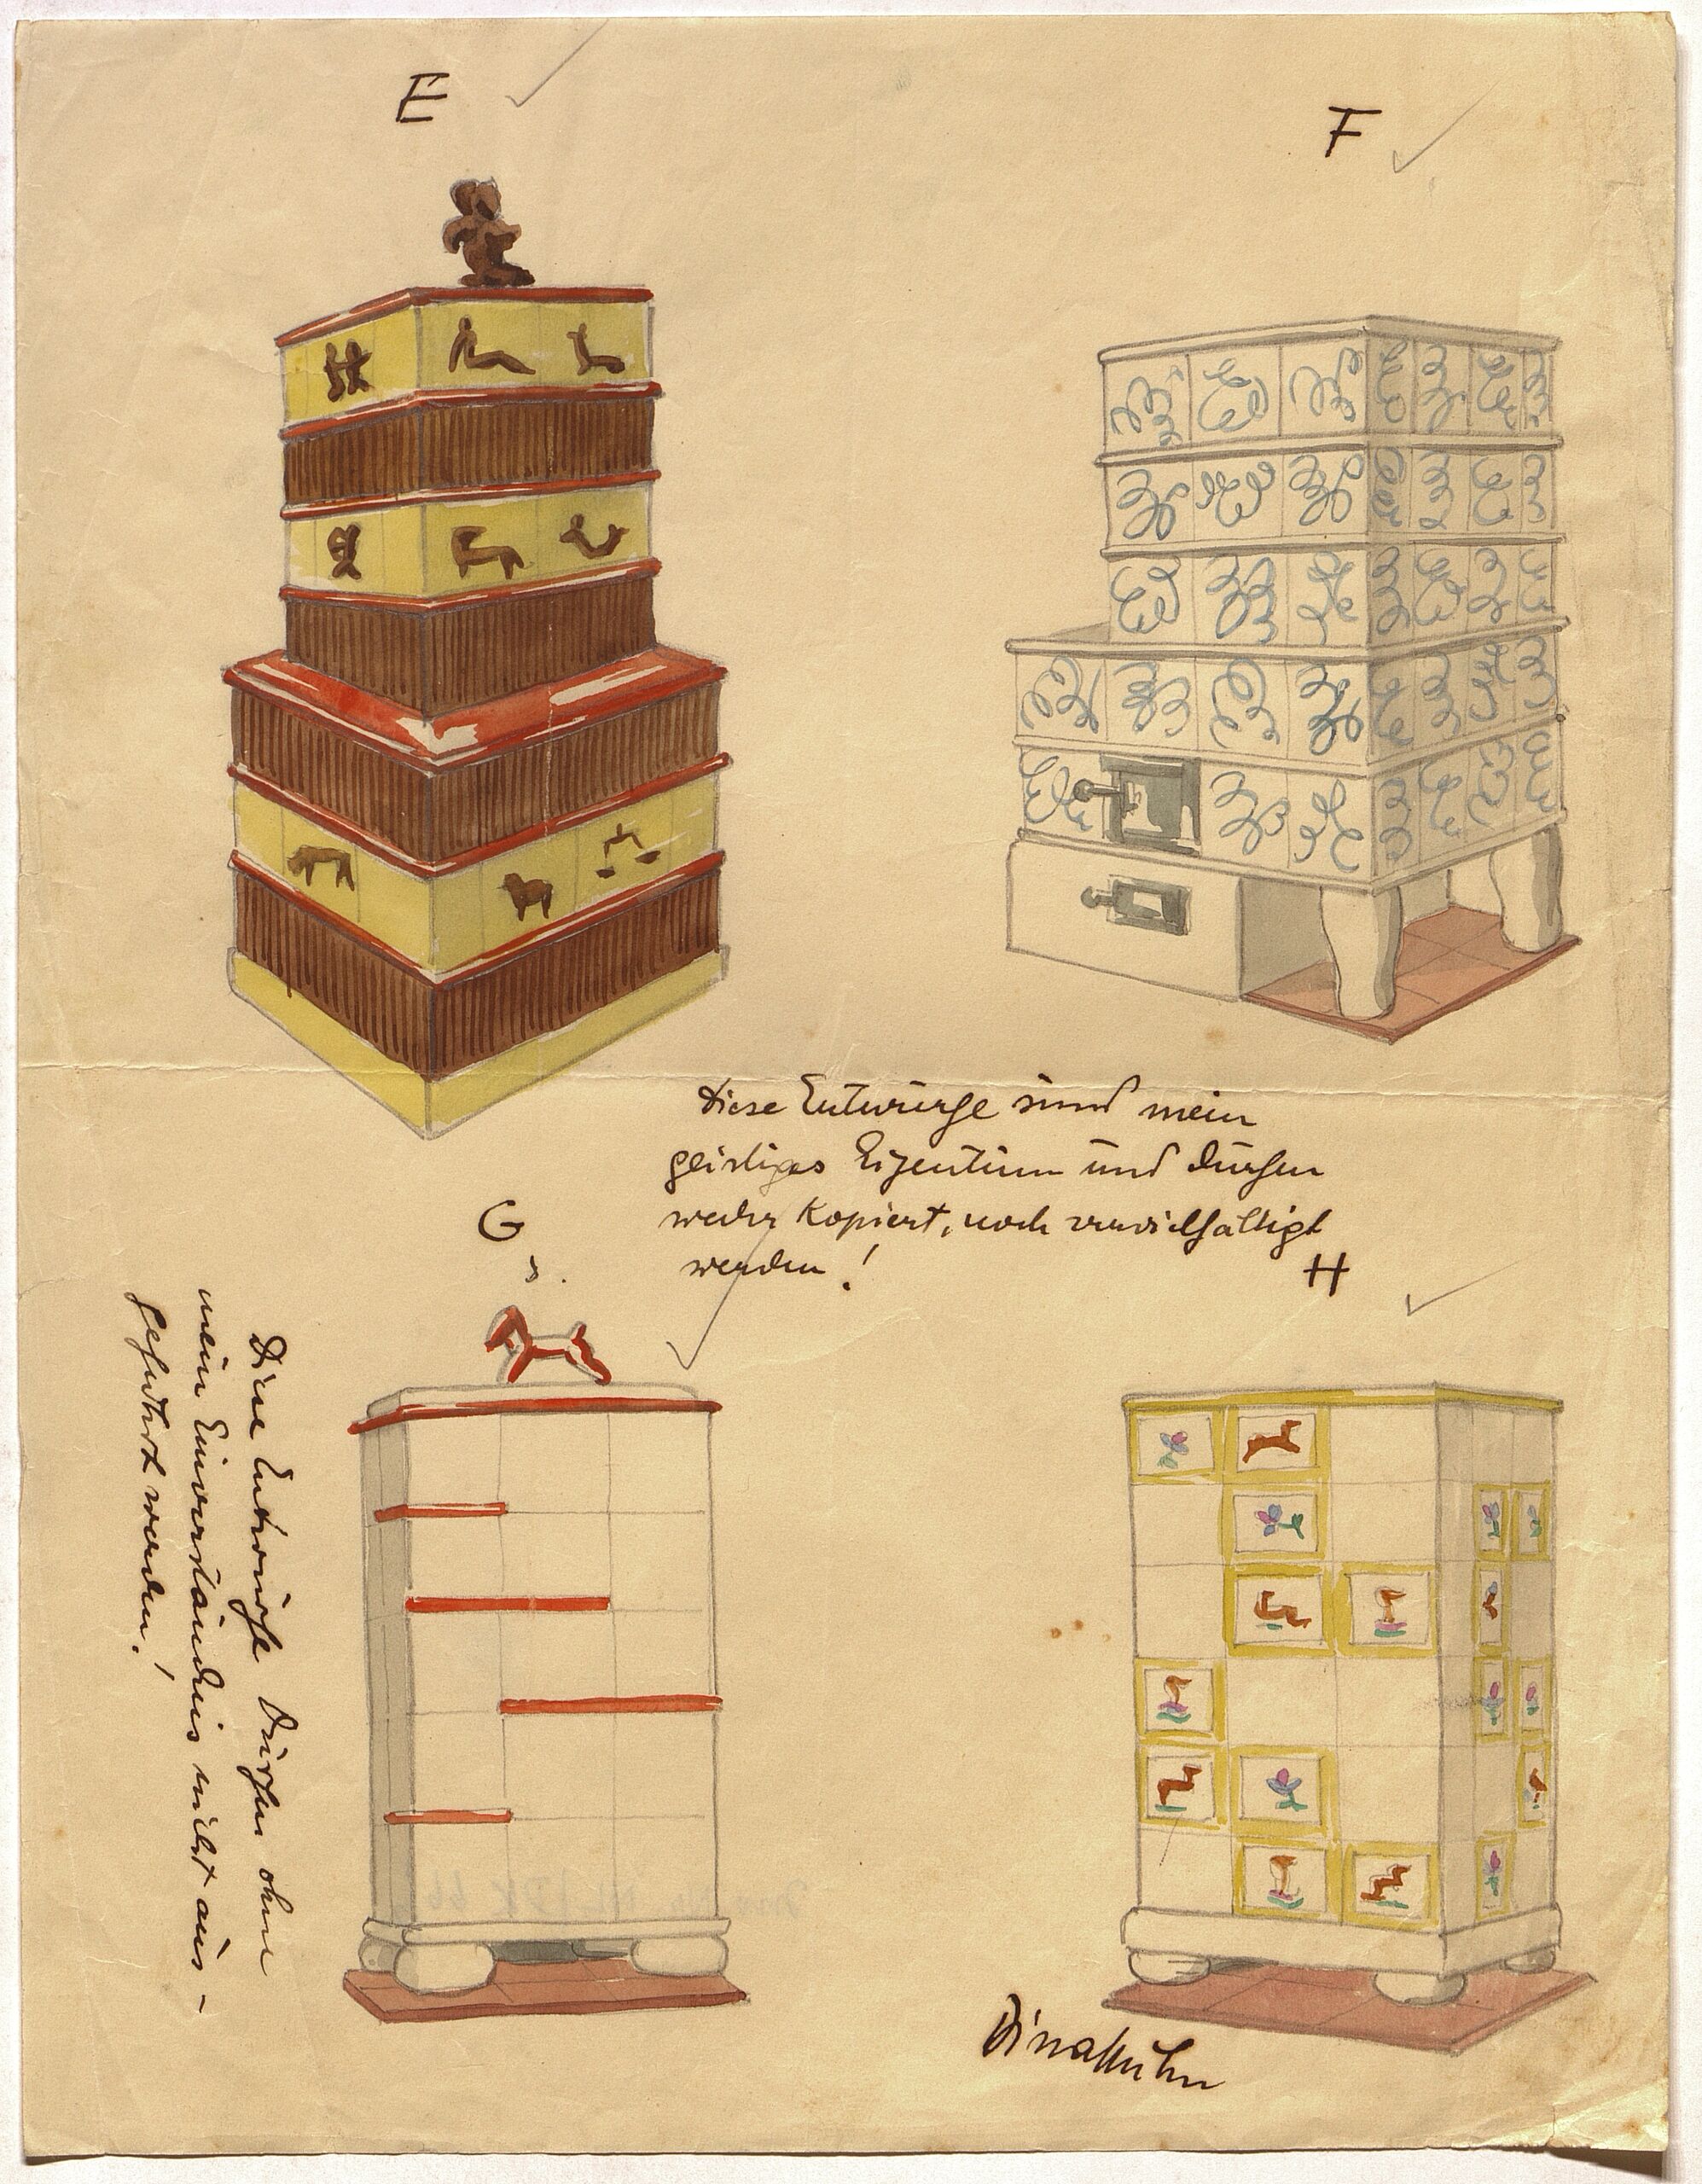 E
F
Diese Entwürfe sind mein
geistiges Eigentum und dürfen
weder kopiert, noch vervielfältigt
werden!
G
H
Diese Entwürfe dürfen ohne
mein Einverständnis nicht aus-
geführt werden!
Dina Kuhn